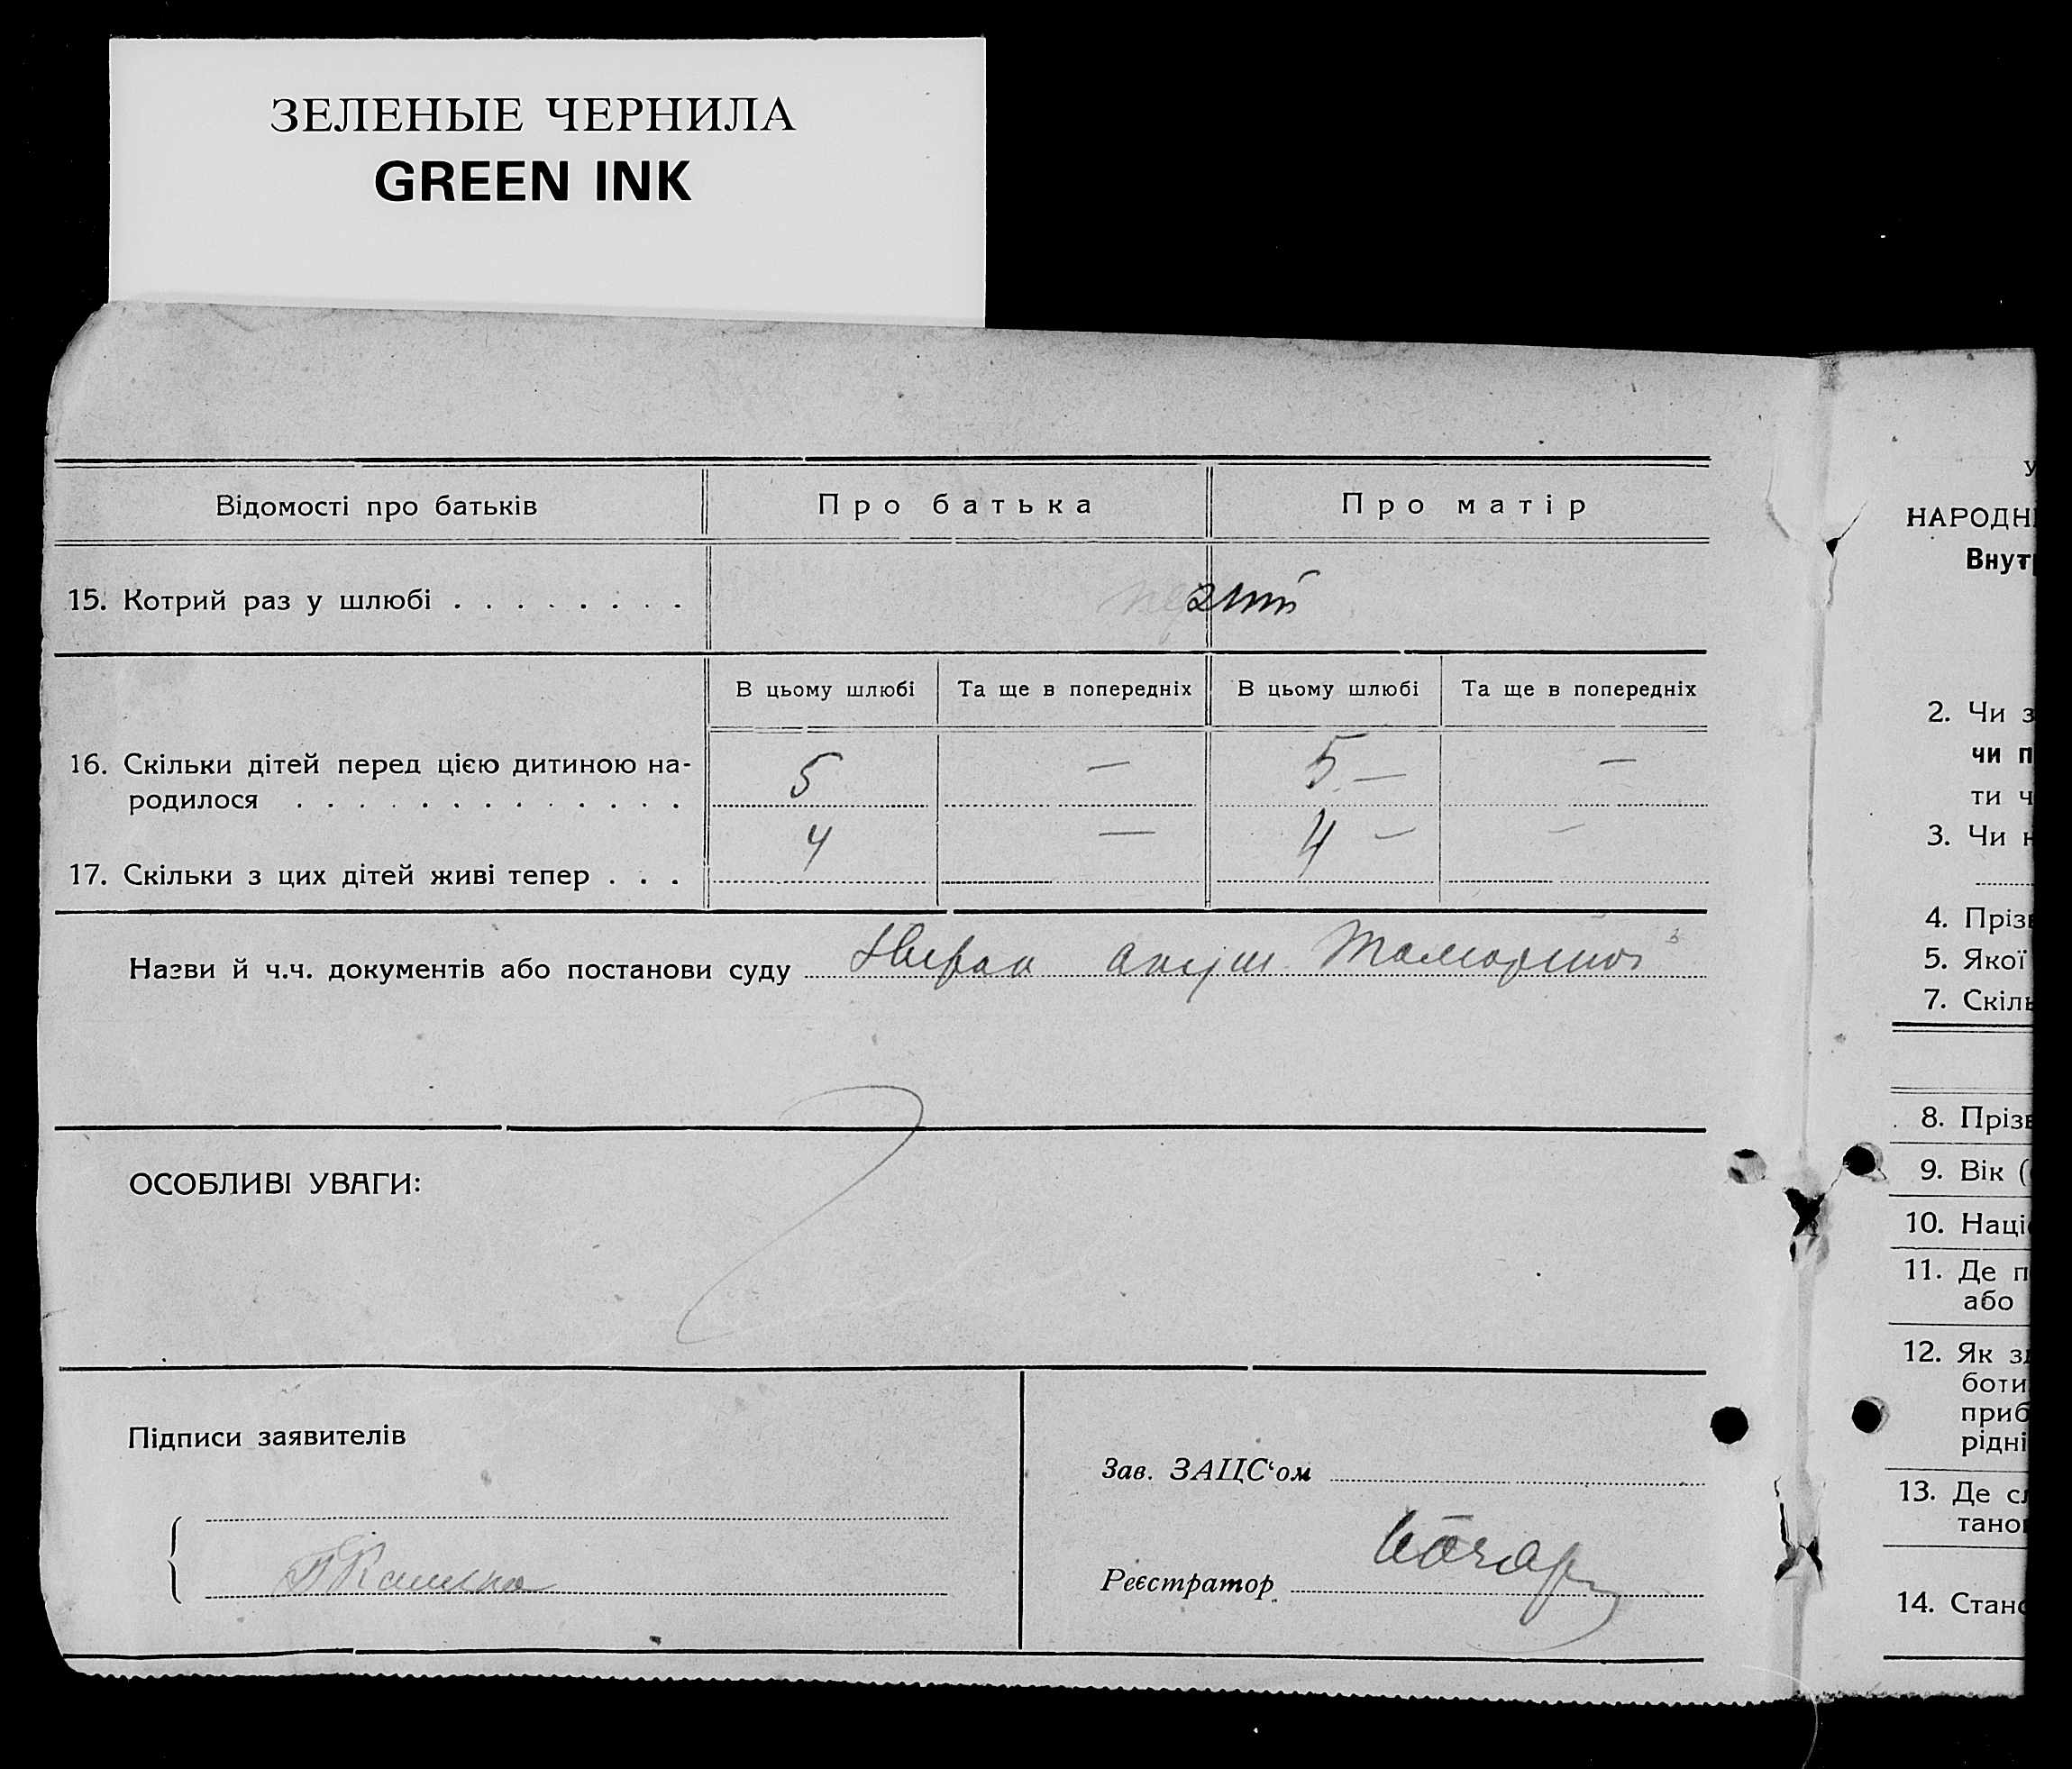 ЗЕЛЕНЫЕ ЧЕРНИЛА
GREEN INK
Відомості про батьків
Про батька
Про матір
15. Котрий раз у шлюбі . . . . . . . .
В цьому шлюбі
Та ще в попередніх
В цьому шлюбі
Та ще в попередніх
16. Скільки дітей перед цією дитиною на-
родилося . . . . . . . . . . . . .
5
—
5 —
—
17. Скільки з цих дітей живі тепер . . .
4
—
4 —
—
Назви й ч.ч. документів або постанови суду
ОСОБЛИВІ УВАГИ:
Підписи заявителів
Зав. ЗАЦС‘ом
Реєстратор
У
НАРОДН
Внут
2. Чи з
чи п
ти ч
3. Чи н
4. Прізв
5. Якої
7. Скіль
8. Прізв
9. Вік (
10. Наці
11. Де п
або
12. Як зд
боти
приб
рідні
13. Де сл
тано
14. Стано